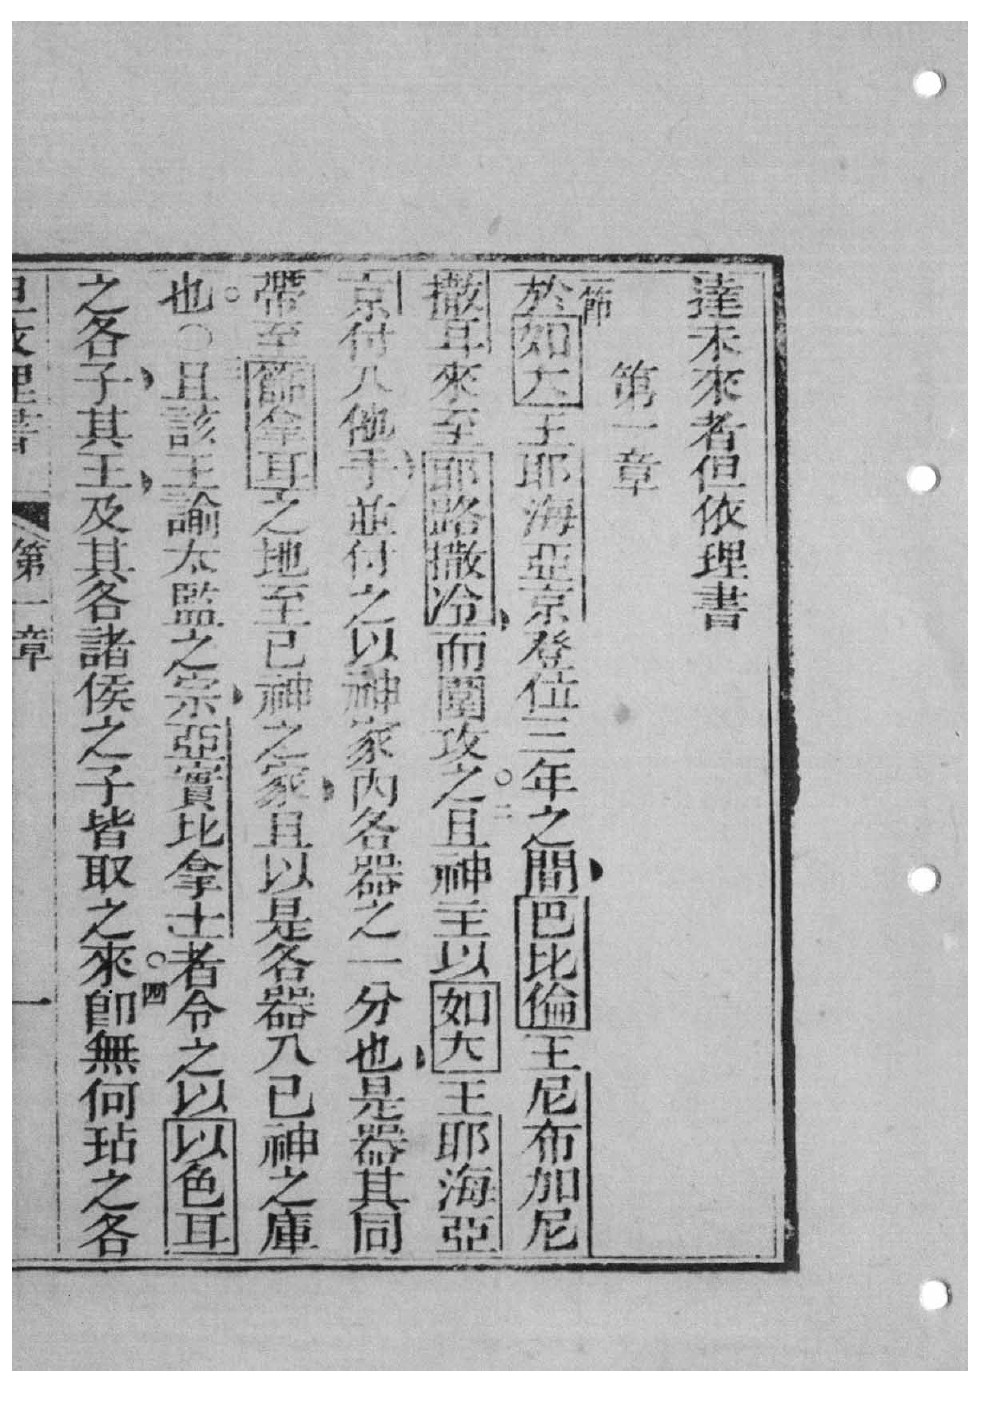 達未來者但依理書
第一章
一節於如大王耶海亞京登位三年之間巴比倫王尼布加尼
撒耳來至耶路撒冷而圍攻之○二且神主以如大王耶海亞
京付入他手並付之以神家內各器之一分也是器其同
帶至篩拿耳之地至己神之家且以是各器入己神之庫
也○三且該王諭太監之宗亞實比拿士者令之以以色耳
之各子其王及其各諸侯之子皆取之來○四即無何玷之各
但依理書 第一章 一